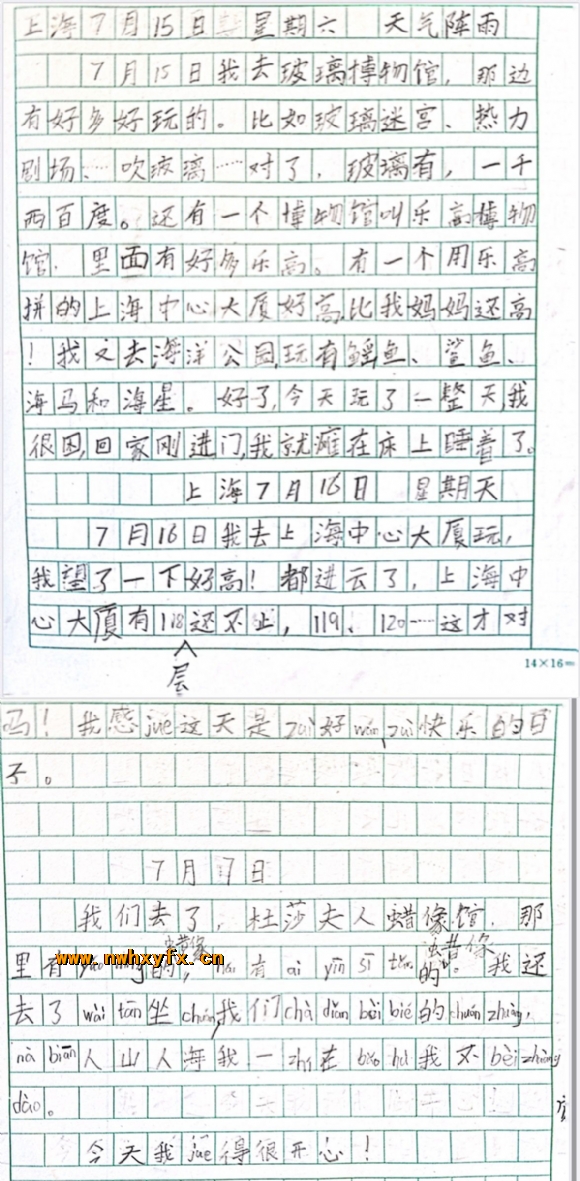 上海7月15日 星期六 天气阵雨
7月15日我去玻璃博物馆，那边
有好多好玩的。比如玻璃迷宫、热力
剧场、……吹玻璃……对了，玻璃有，一千
两百度。还有一个博物馆叫乐高博物
馆，里面有好多乐高。有一个用乐高
拼的上海中心大厦好高比我妈妈还高
！我又去海洋公园，玩有鳐鱼、鲨鱼、
海马和海星。好了，今天玩了一整天，我
很困，回家刚进门，我就瘫在床上睡着了。
上海7月16日 星期天
7月16日我去上海中心大厦玩，
我望了一下好高！都进云了，上海中
心大厦有118还不止，119、120……这才对
层
14×16
吗！我感jue这天是zuì好wán，zuì快乐的日
子。
7月17日
我们去了，杜莎夫人蜡像馆，那
蜡像 蜡像
里有 yáo míng 的，hái 有 ài yīn sī tǎn 的。我还
www.nwhxyfx.cn
去了 wài tān 坐 chuán，我们 chà diǎn bèi bié 的 chuán zhuàng，
nà biān 人山人海我一 zhí 在 bǎo hù 我不 bèi zhuàng
dào。
今天我 jué 得很开心！